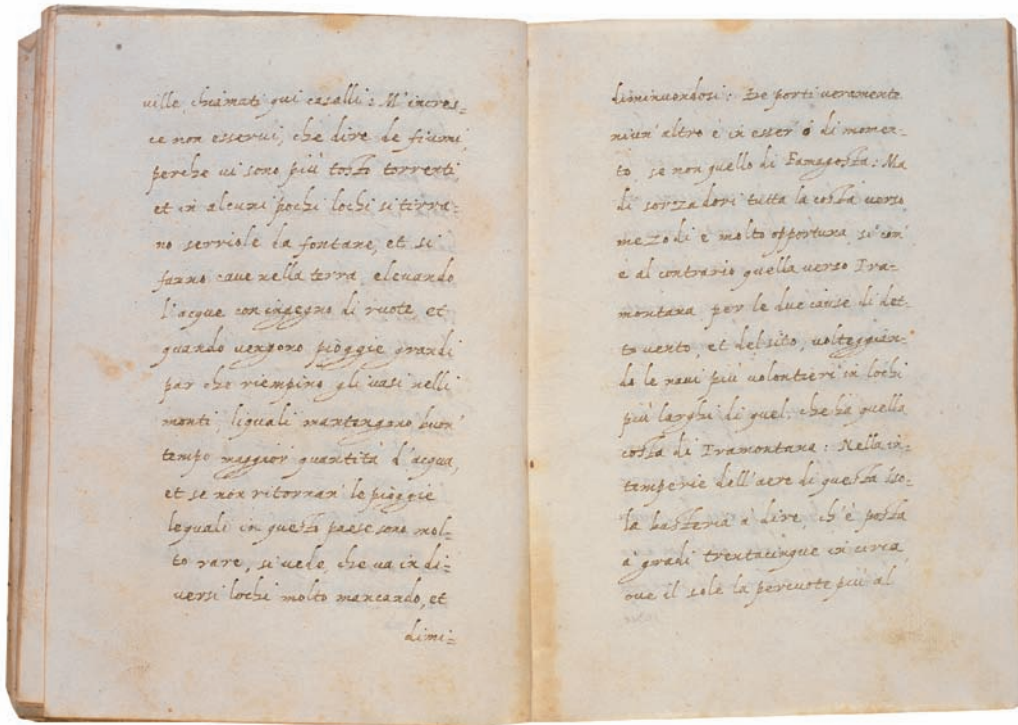 ville, chiamati qui casalli: M'incres=
ce non esserui, che dire de fiumi,
perche ui sono più tosto torrenti,
et in alcuni pochi lochi si tirra=
no serriole da fontane, et si
fanno caue nella terra, eleuando
l'acque con ingegno di ruote, et
quando vengono pioggie grandi
par che riempino gli uasi nelli
monti, liquali mantengano buon
tempo maggior quantità d'acqua,
et se non ritornan' le pioggie
lequali in questo paese sono mol=
to rare, si uede, che ua in di=
uersi lochi molto mancando, et
dimi=
diminuendosi: De porti ueramente
niun' altro è in esser ò di momen=
to, se non quello di Famagosta: Ma
di sorzadori tutta la costa uerso
mezodi è molto opportuna, si con'
è al contrario quella uerso Tra=
montana, per le due cause di det=
to uento, et del sito, uolteggian=
do le naui più uolontieri in lochi
più larghi di quel, che hà quella
costa di Tramontana: Nella in=
temperie dell'aere di questa Iso=
la basteria a dire, ch'è posta
à gradi trentacinque in circa,
oue il sole la percuote più al